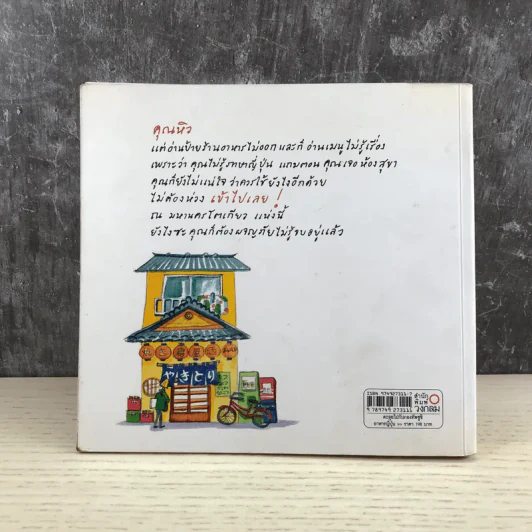 คุณหิว
แต่อ่านป้ายร้านอาหารไม่ออก และก็ อ่านเมนูไม่รู้เรื่อง
เพราะว่า คุณไม่รู้ภาษาญี่ปุ่น แถมตอน คุณเจอ ห้องสุขา
คุณก็ยังไม่แน่ใจ ว่าควรใช้ยังไงอีกด้วย
ไม่ต้องห่วง เข้าไปเลย !
ณ มหานครโตเกียว แห่งนี้
ยังไงซะ คุณก็ต้องผจญภัยไม่รู้จบอยู่แล้ว
やきとり
ISBN 974927311-7
9 789749 273111
สำนัก
พิมพ์
วงกลม